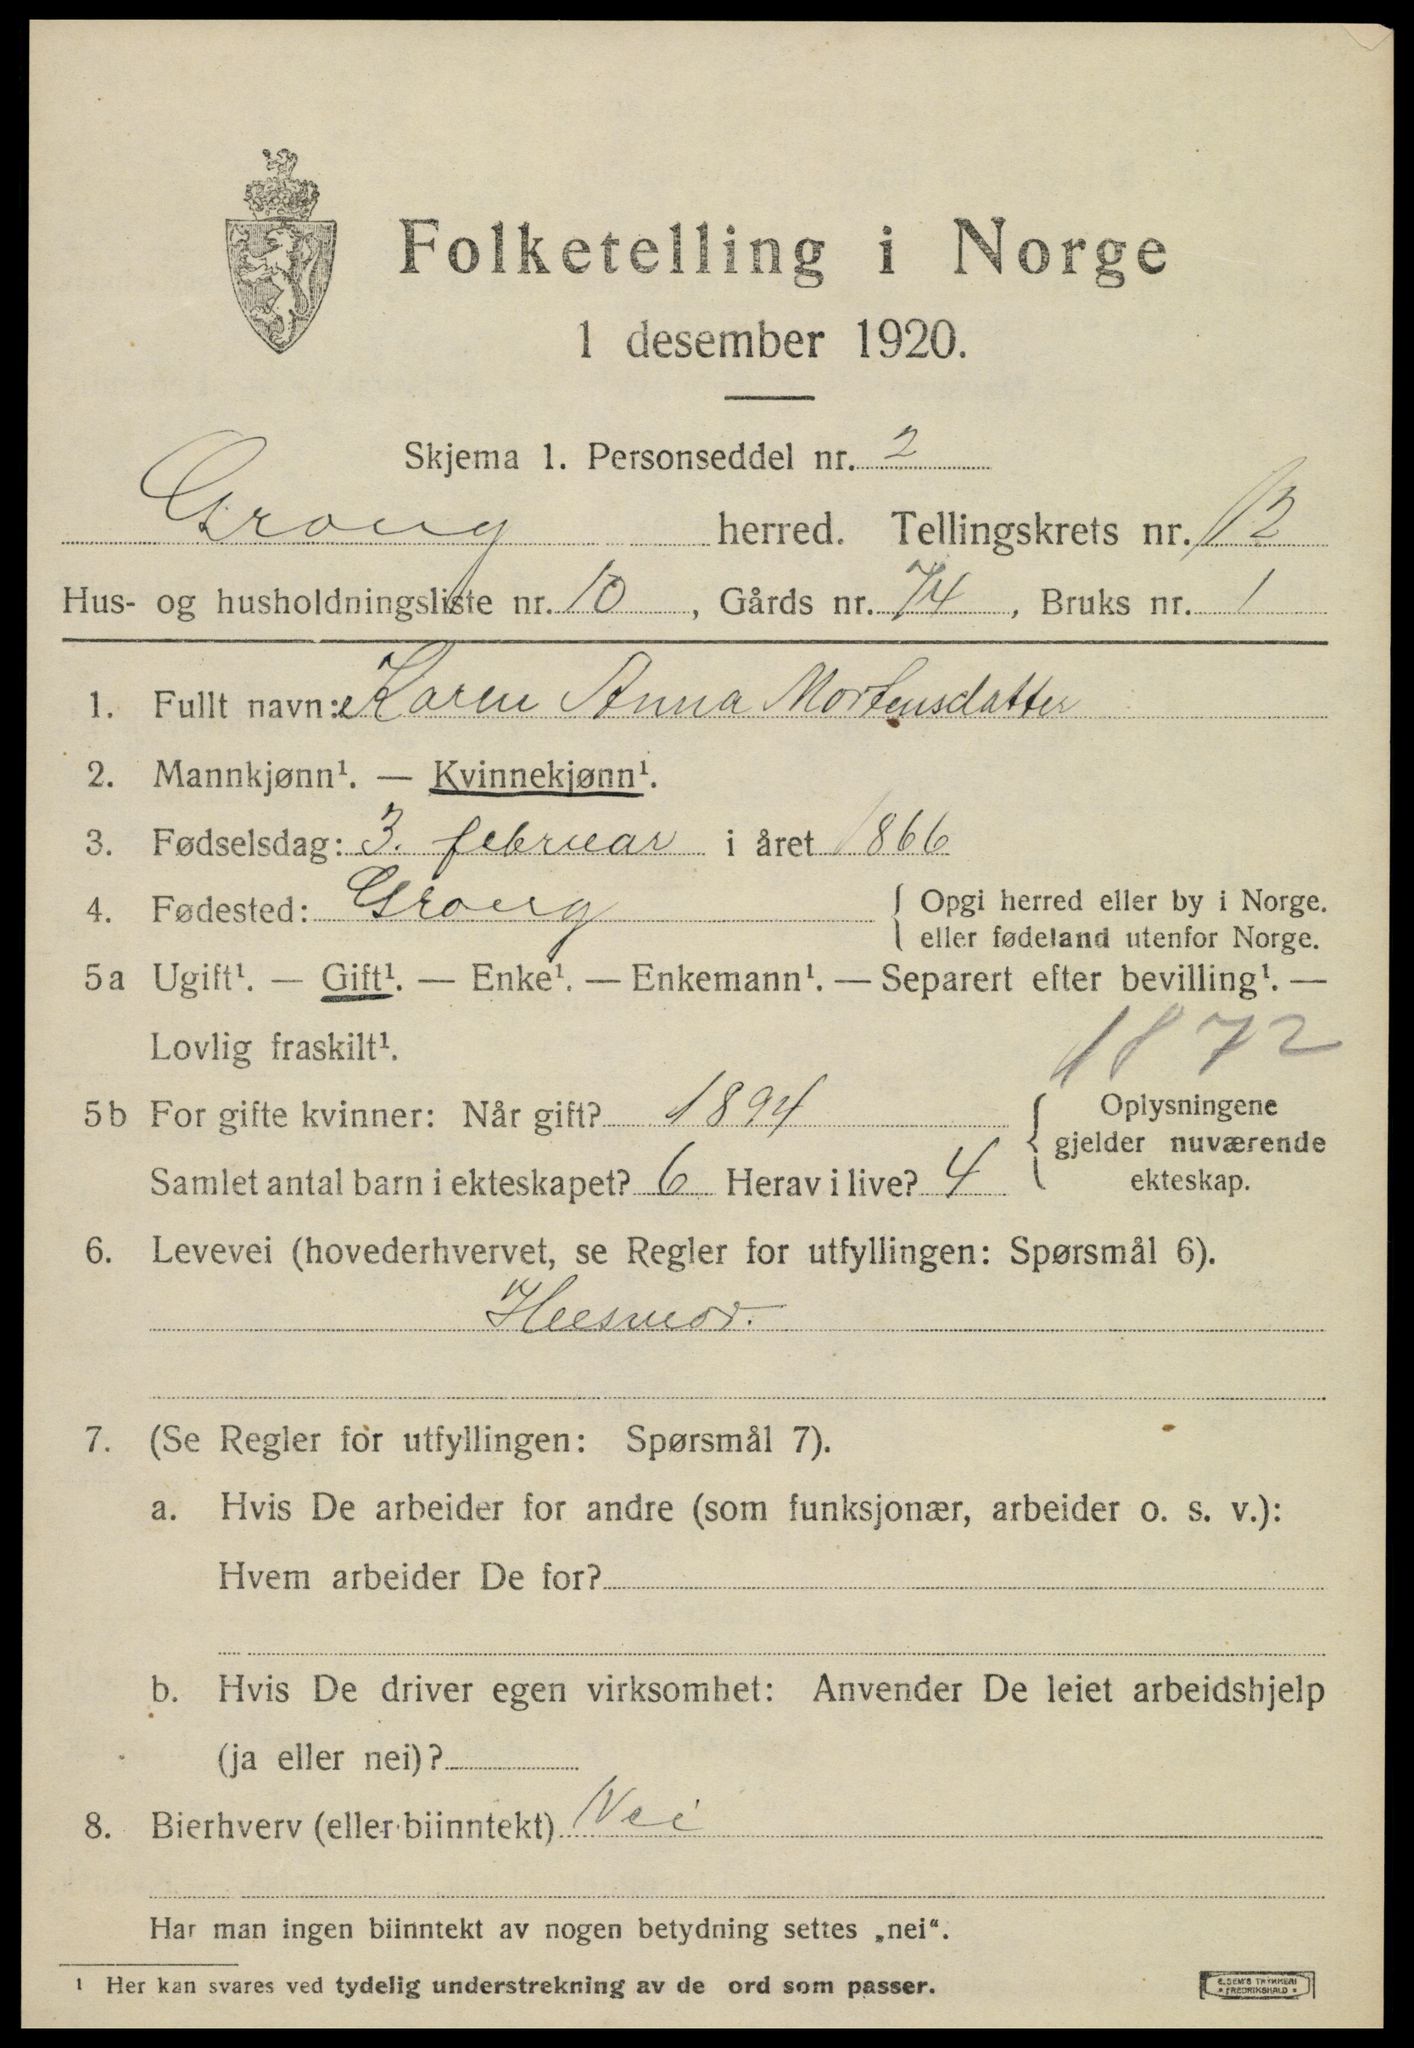 Folketelling i Norge
1 desember 1920.
Skjema 1. Personseddel nr. 2
Grong herred. Tellingskrets nr. 12
Hus- og husholdningsliste nr. 10, Gårds nr. 74, Bruks nr. 1
1. Fullt navn: Karen Anna Mortensdatter
2. Mannkjønn¹. — Kvinnekjønn¹.
3. Fødselsdag: 3. februar i året 1866
4. Fødested: Grong { Opgi herred eller by i Norge.
eller fødeland utenfor Norge.
5a Ugift¹. — Gift¹. — Enke¹. — Enkemann¹. — Separert efter bevilling¹. —
Lovlig fraskilt¹.
1872
5b For gifte kvinner: Når gift? 1894 { Oplysningene
gjelder nuværende
Samlet antal barn i ekteskapet? 6 Herav i live? 4 ekteskap.
6. Levevei (hovederhvervet, se Regler for utfyllingen: Spørsmål 6).
Husmor.
7. (Se Regler for utfyllingen: Spørsmål 7).
a. Hvis De arbeider for andre (som funksjonær, arbeider o. s. v.):
Hvem arbeider De for?
b. Hvis De driver egen virksomhet: Anvender De leiet arbeidshjelp
(ja eller nei)?
8. Bierhverv (eller biinntekt) Nei
Har man ingen biinntekt av nogen betydning settes „nei“.
¹ Her kan svares ved tydelig understrekning av de ord som passer.
E. SEM'S TRYKKERI
• FREDRIKSHALD •